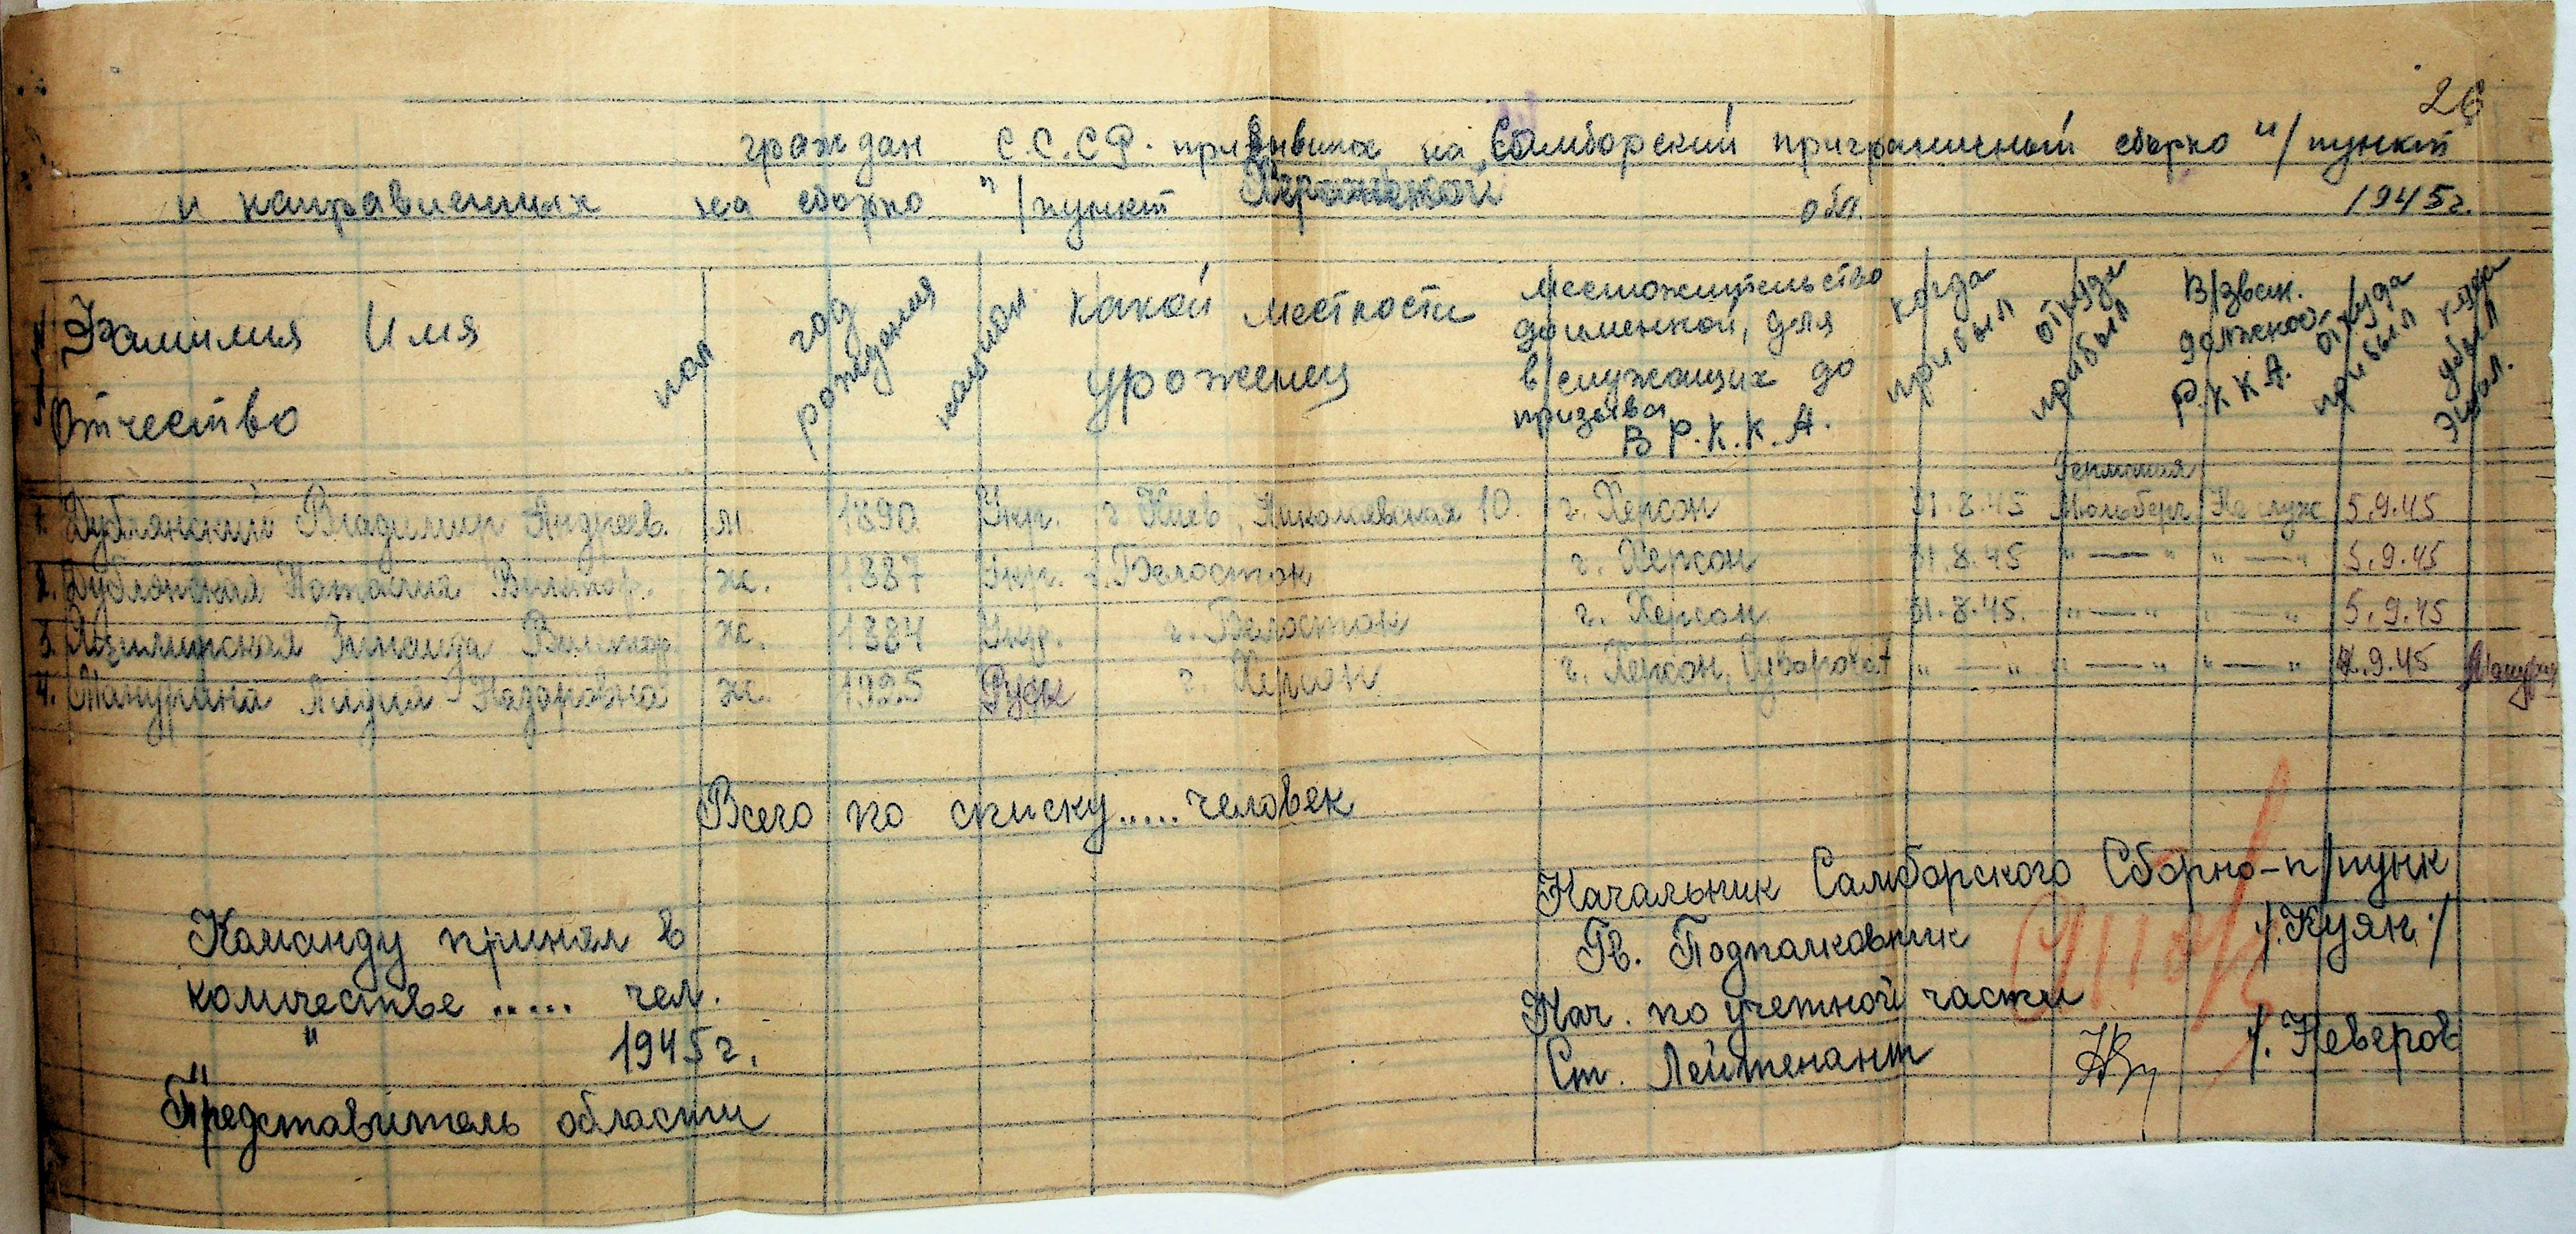 26
граждан С.С.С.Р. прибывших на Самборский приграничный сборно "/пункт
и направленных на сборно "/пункт Херсонской обл 1945г.
Фамилия Имя Отчество
пол
год рождения
национ.
какой местности уроженец
местожительство
до именной, для
в/служащих до
призыва
В Р.К.К.А.
когда прибыл
откуда прибыл
В/зван. должнос. Р.К.К.А.
откуда прибыл
куда убыл
1. Дублянский Владимир Андреев. м. 1890 Укр. г. Киев, Николаевская 10. г. Херсон 31.8.45 Германия Мюльберг Не служ 5.9.45
2. Дублянская Наталия Виктор. ж. 1887 Укр. г. Белосток г. Херсон 31.8.45 " — " " — " 5.9.45
3. Зинаида Виктор. ж. 1884 Укр. г. Белосток г. Херсон 31.8.45. " — " " — " 5.9.45
4. Манурина Лидия Назаровна ж. 1925 Русск г. Херсон г. Херсон, Суворова " — " " — " " — " 4.9.45
Всего по списку..... человек
Начальник Самборского Сборно-п/пунк
Гв. Подполковник /.Куян./
Нач. по учетной части
Ст. Лейтенант /. Неверов
Команду принял в
количестве ..... чел.
" 1945 г.
Представитель области